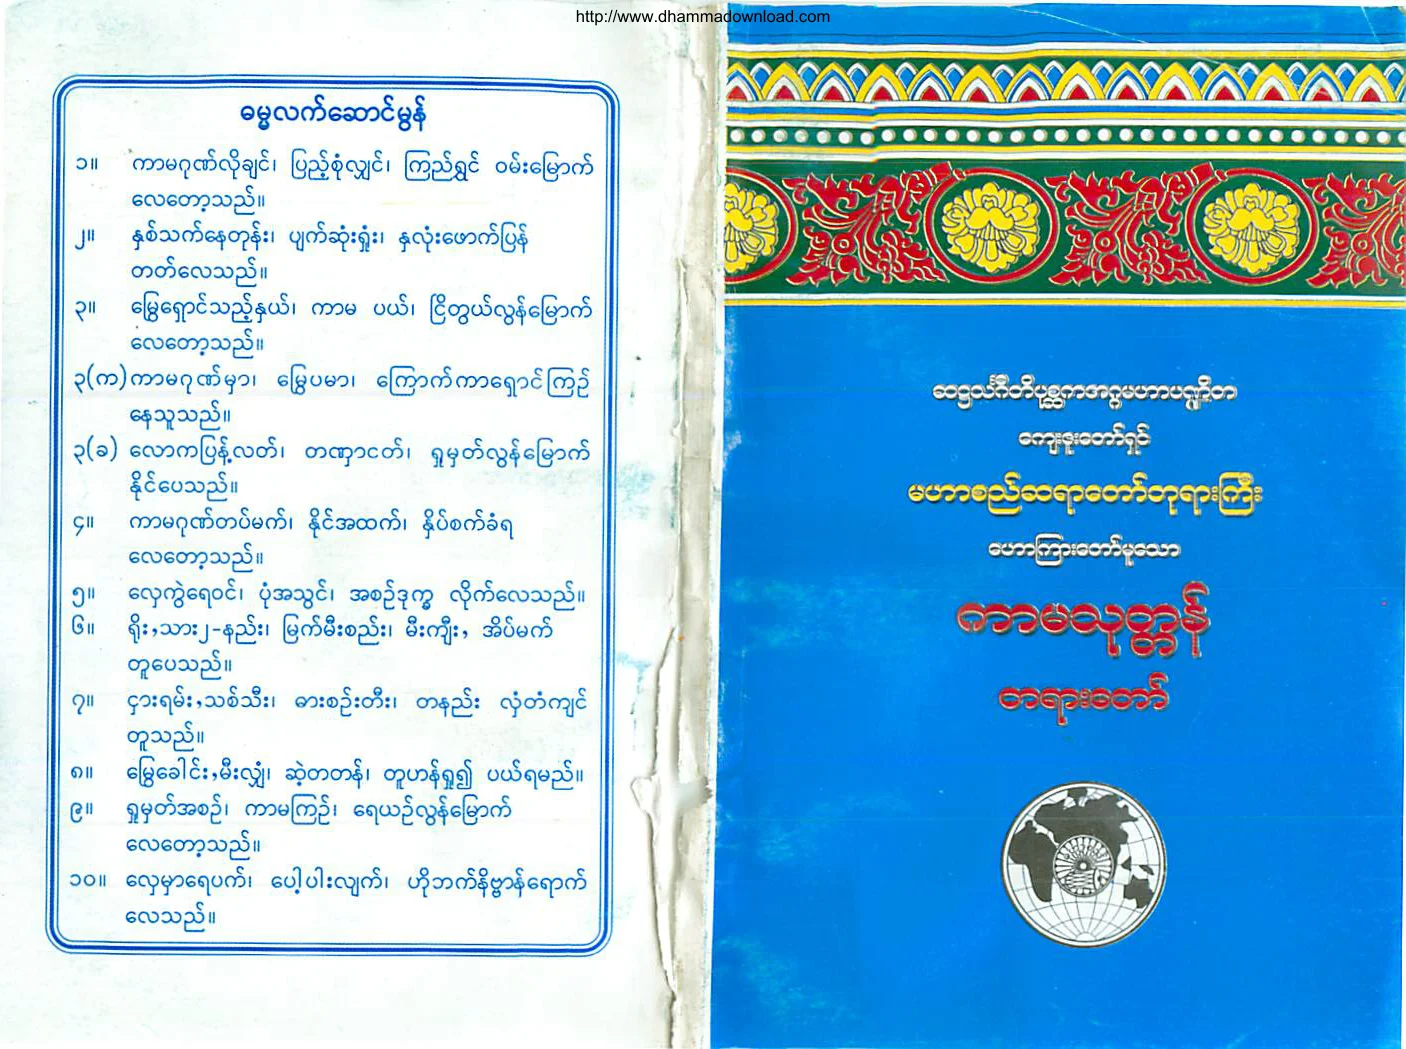 http://www.dhammadownload.com
ဓမ္မလက်ဆောင်မွန်
၁။ ကာမဂုဏ်လိုချင်၊ ပြည့်စုံလျှင်၊ ကြည်ရွှင် ဝမ်းမြောက်
လေတော့သည်။
၂။ နှစ်သက်နေတုန်း၊ ပျက်ဆုံးရှုံး၊ နှလုံးဖောက်ပြန်
တတ်လေသည်။
၃။ မြွေရှောင်သည့်နှယ်၊ ကာမ ပယ်၊ ငြိတွယ်လွန်မြောက်
လေတော့သည်။
၃(က) ကာမဂုဏ်မှာ၊ မြွေပမာ၊ ကြောက်ကာရှောင်ကြဉ်
နေသူသည်။
၃(ခ) လောကပြန့်လတ်၊ တဏှာငတ်၊ ရှုမှတ်လွန်မြောက်
နိုင်ပေသည်။
၄။ ကာမဂုဏ်တပ်မက်၊ နိုင်အထက်၊ နှိပ်စက်ခံရ
လေတော့သည်။
၅။ လှေကွဲရေဝင်၊ ပုံအသွင်၊ အစဉ်ဒုက္ခ လိုက်လေသည်။
၆။ ရိုး,သား၂-နည်း၊ မြက်မီးစည်း၊ မီးကျီး, အိပ်မက်
တူပေသည်။
၇။ ငှားရမ်း,သစ်သီး၊ ဓားစဉ်းတီး၊ တနည်း လှံတံကျင်
တူသည်။
၈။ မြွေခေါင်း,မီးလျှံ၊ ဆဲ့တတန်၊ တူဟန်ရှု၍ ပယ်ရမည်။
၉။ ရှုမှတ်အစဉ်၊ ကာမကြဉ်၊ ရေယဉ်လွန်မြောက်
လေတော့သည်။
၁၀။ လှေမှာရေပက်၊ ပေါ့ပါးလျက်၊ ဟိုဘက်နိဗ္ဗာန်ရောက်
လေသည်။
ဆဋ္ဌသင်္ဂီတိပုစ္ဆကအဂ္ဂမဟာပဏ္ဍိတ
ကျေးဇူးတော်ရှင်
မဟာစည်ဆရာတော်ဘုရားကြီး
ဟောကြားတော်မူသော
ကာမသုတ္တန်
တရားတော်